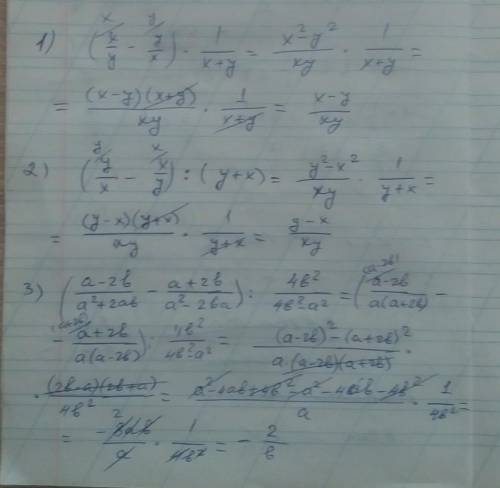 1) (x/y - y/x) · 1/(x+y) = (x²-y²)/(xy) · 1/(x+y) =
= (x-y)(x+y)/(xy) · 1/(x+y) = (x-y)/(xy)
2) (y/x - x/y) : (y+x) = (y²-x²)/(xy) · 1/(y+x) =
= (y-x)(y+x)/(xy) · 1/(y+x) = (y-x)/(xy)
3) ((a-2b)/(a²+2ab) - (a+2b)/(a²-2ba)) : 4b²/(4b²-a²) = ((a-2b)/(a(a+2b)) -
- (a+2b)/(a(a-2b))) · 4b²/(4b²-a²) = ((a-2b)²-(a+2b)²)/(a·(a-2b)(a+2b)) ·
· (2b-a)(2b+a)/(4b²) = (a²-4ab+4b²-a²-4ab-4b²)/a · 1/(4b²) =
= -8ab/a · 1/(4b²) = - 2/b